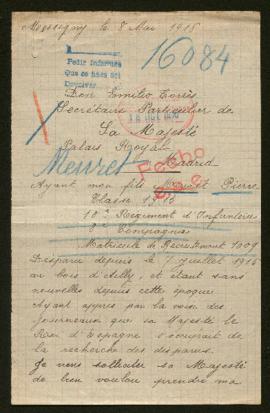 Messigny le 8 Mai 1915
16084
Pedir informes
Don Emilio Torrès
Secrétaire Particulier de
Sa Majesté
Palais Royal
Meuret
Madrid
Fecho
Ayant mon fils Meuret Pierre
Classe 1910
10e Régiment d'Infanterie
9e Compagnie
Matricule de Recrutement 1009
Disparu depuis le 7 juillet 1915
au bois d'Ailly, et étant sans
nouvelles depuis cette époque
Ayant appris par la voix des
journeaux que sa Majesté le
Roi d'Espagne s'occupait de
la recherche des disparus.
Je vous solliciter sa Majesté
de bien vouloir prendre ma